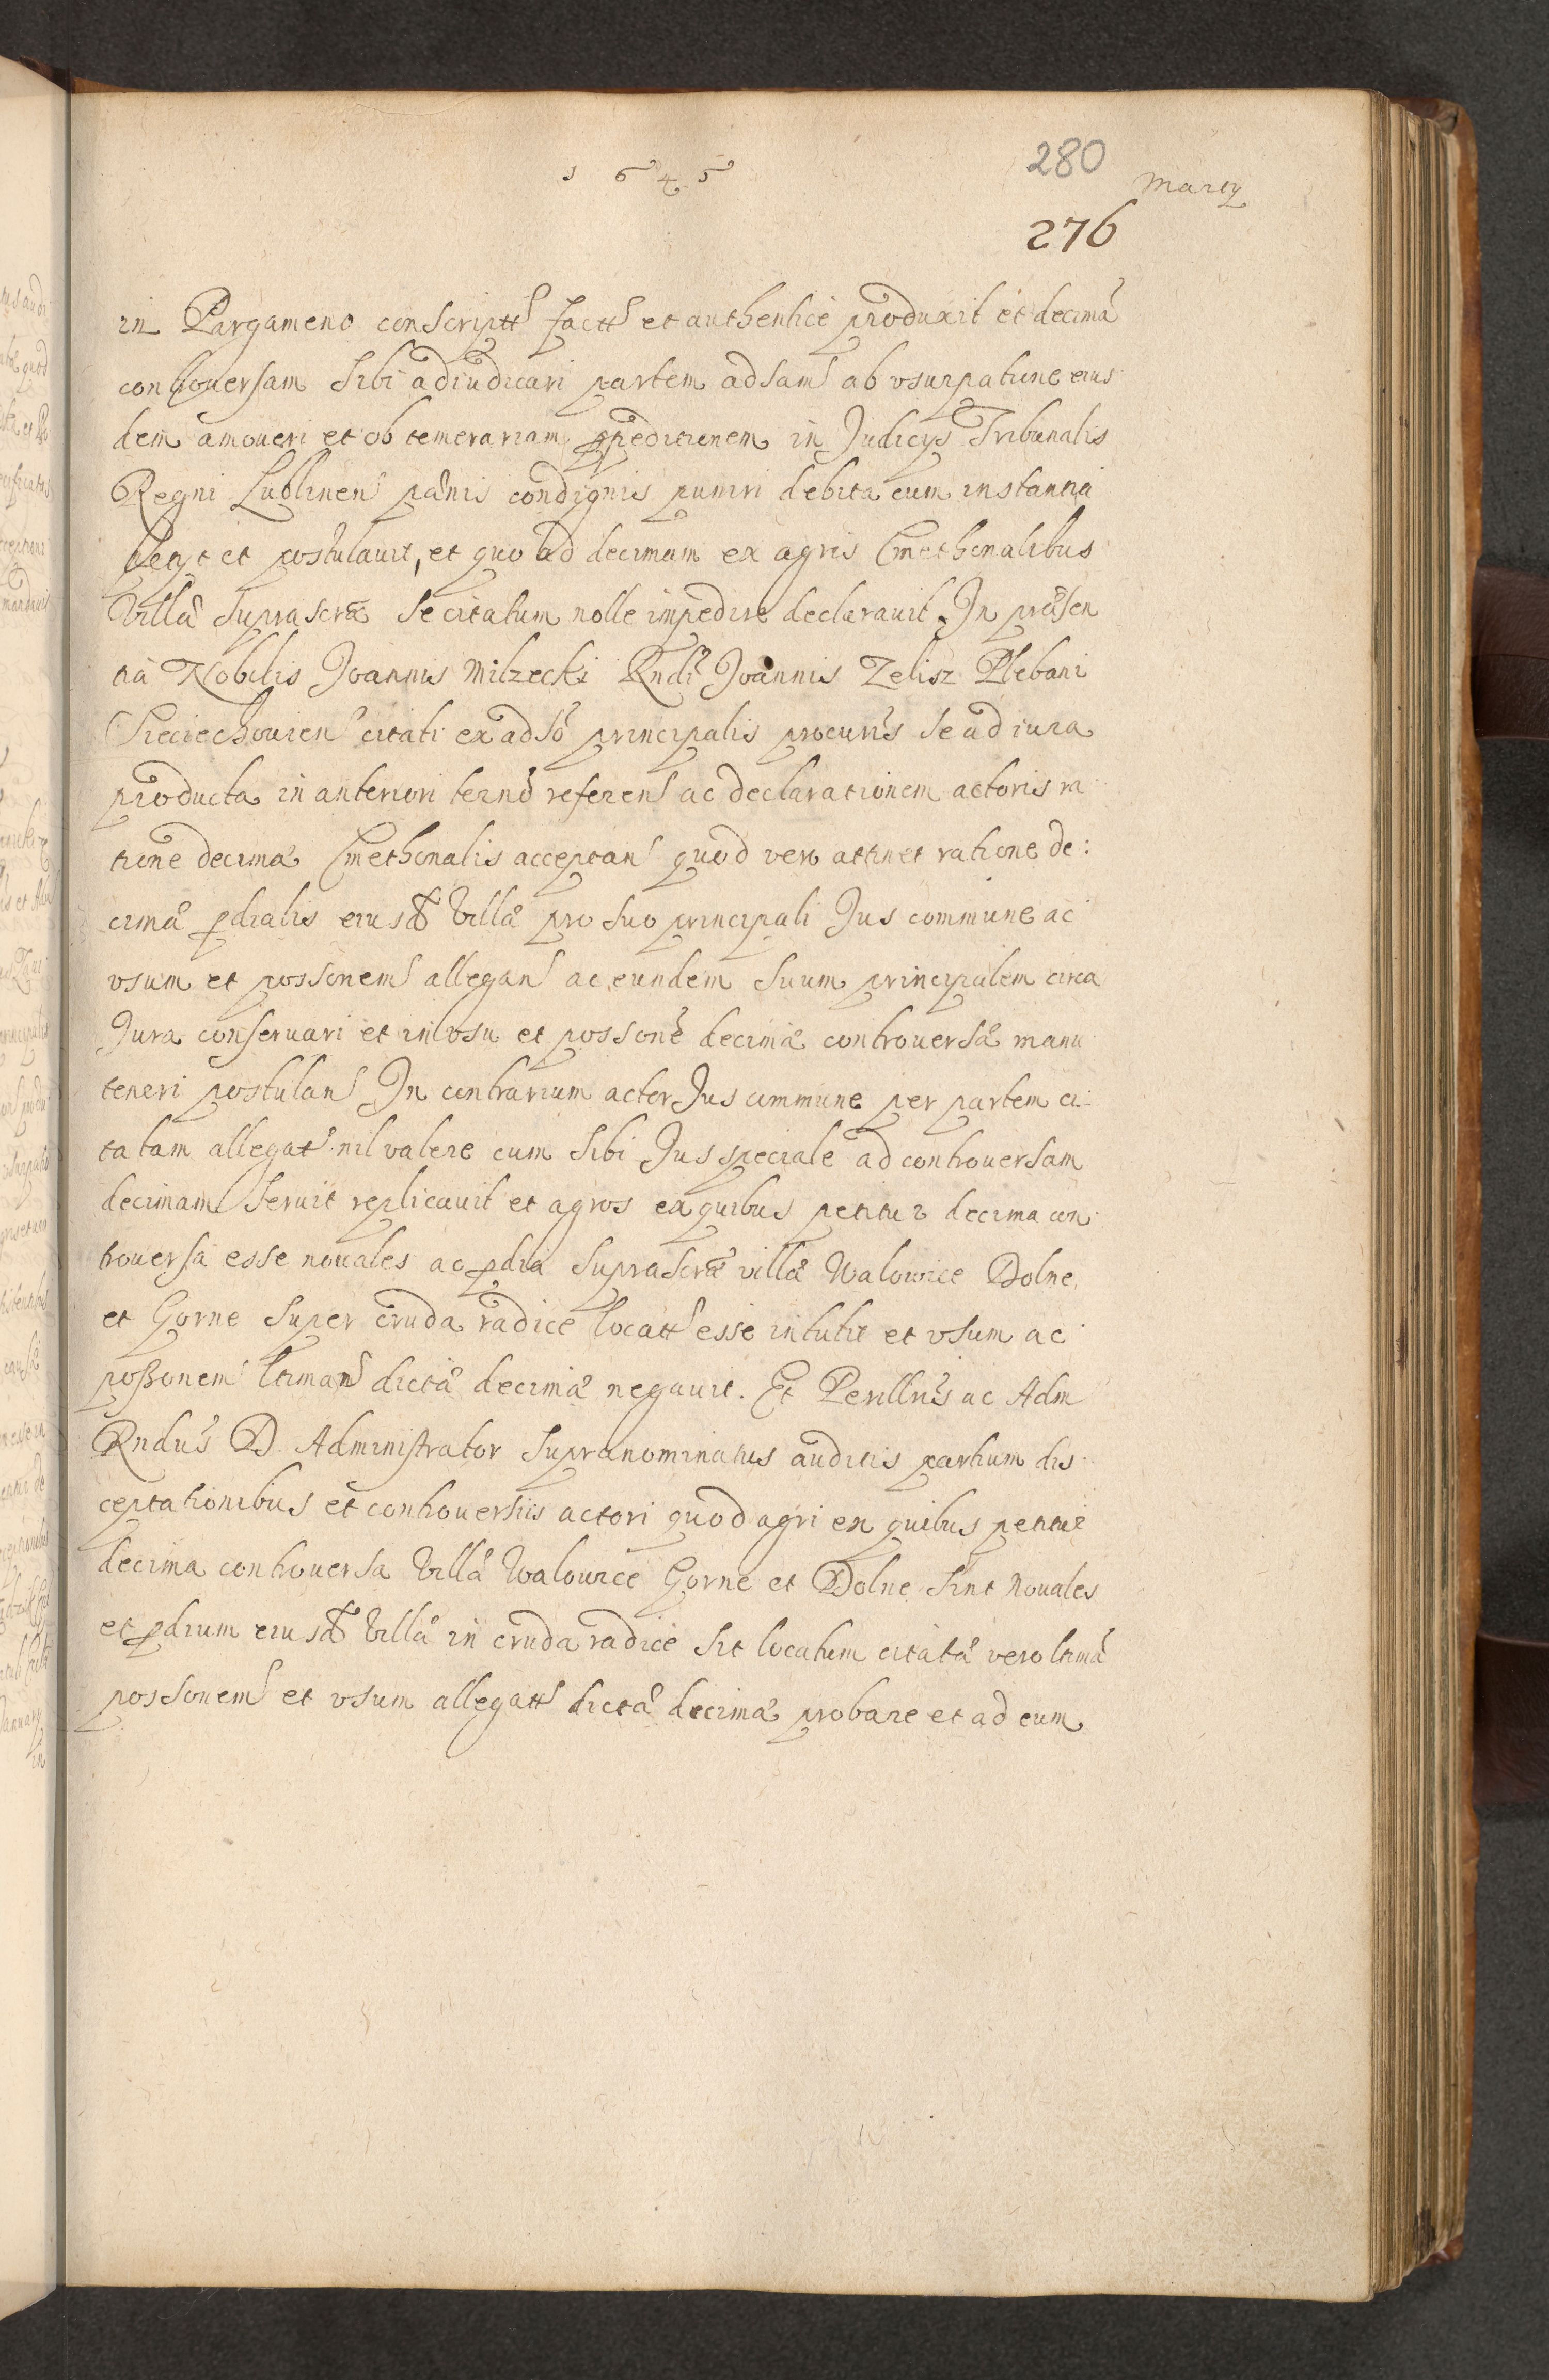 1645
280
Marty
276
in Pargameno conscriptt factt et authentice produxit et decimã
controuersam sibi adiudicari partem adsam ab vsurpatione eius
dem amoueri et ob temerariam expeditionem in Judicys Tribunalis
Regni Lublinen pænis condignis puniri debita cum instantia
petyt et postulauit, et quo ad decimam ex agris Cmethonalibus
Villæ suprascræ se citatum nolle impedire declarauit. In præsen
tia Nobilis Joannis Milzecki Rndi Joannis Zelisz Plebani
Sieciechouien citati ex adso principalis procuris se ad iura
producta in anteriori termo referen ac declarationem actoris ra
tione decimæ Cmethonalis acceptan quod vero attinet ratione de:
cimæ pdialis eiusd Villæ pro suo principali Jus commune ac
vsum et possonem allegan ac eundem suum principalem circa
Jura conseruari et in vsu et possone decimæ controuersæ manu
teneri postulan In contrarium actor Jus commune per partem ci:
tatam allegat nil valere cum sibi Jus speciale ad controuersam
decimam seruit replicauit et agros ex quibus petitur decima con
trouersa esse nouales ac pdia suprascræ villæ Walowice Dolne
et Gorne super cruda radice locatt esse intulit et vsum ac
possonem ltimam dictæ decimæ negauit. Et Perillris ac Adm
Rndus D. Administrator supranominatus auditis partium dis
ceptationibus et controuersiis actori quod agri ex quibus petitur
decima controuersa Villæ Walowice Gorne et Dolne sint Nouales
et pdium eiusd Villæ in cruda radice sit locatum citatæ vero ltimã
possonem et vsum allegatt dictæ decimæ probare et ad eum